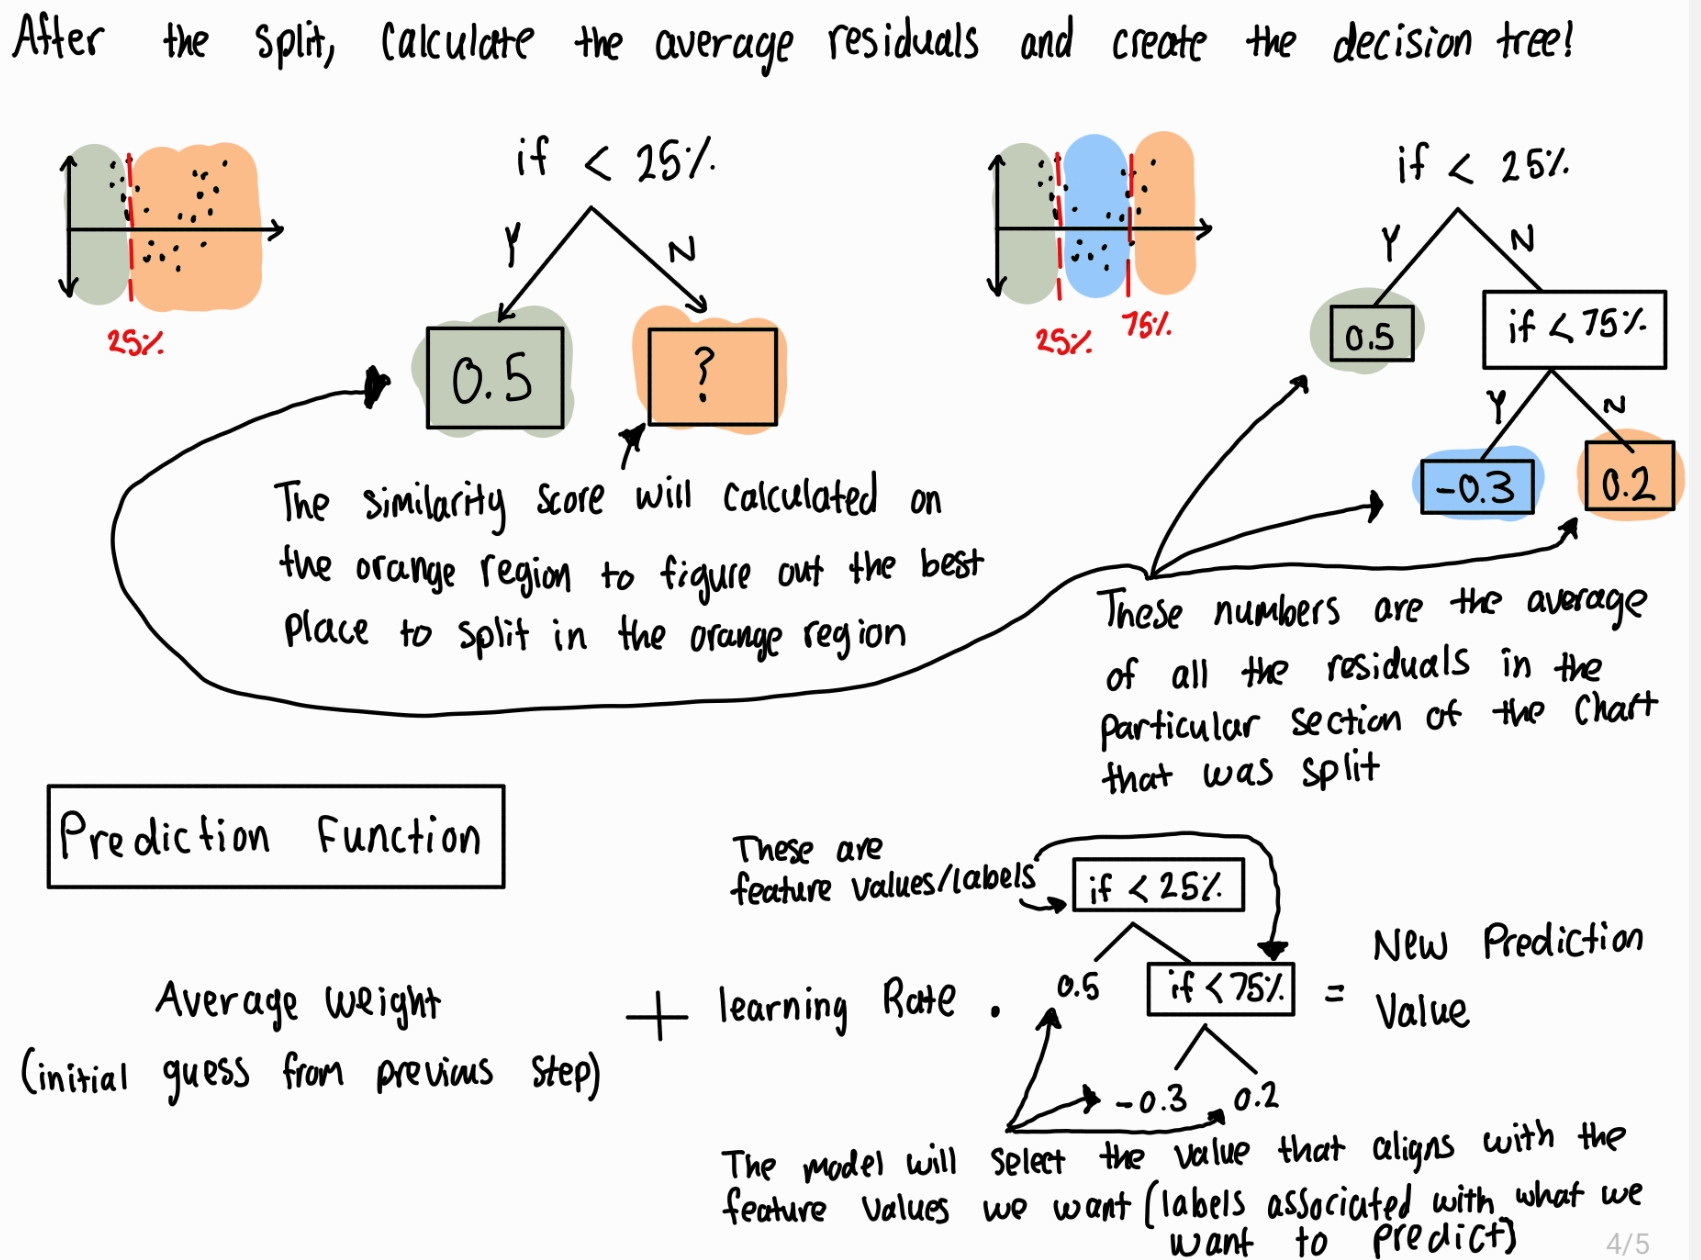 After the split, Calculate the average residuals and create the decision tree!
if < 25%
Y
N
25%
0.5
?
The similarity score will calculated on
the orange region to figure out the best
place to split in the orange region
if < 25%
Y
N
25%
75%
0.5
if < 75%
Y
N
-0.3
0.2
These numbers are the average
of all the residuals in the
particular section of the Chart
that was split
Prediction Function
Average weight
(initial guess from previous step)
+
learning Rate .
These are
feature values/labels
if < 25%
0.5
if < 75%
-0.3
0.2
=
New Prediction
Value
The model will select the value that aligns with the
feature values we want (labels associated with what we
want to predict)
4/5